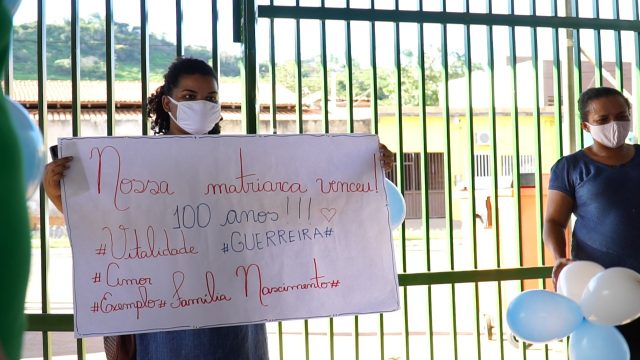 Nossa matriarca venceu!
100 anos!!! ♡
#Vitalidade #GUERREIRA#
#Amor
#Exemplo# Família Nascimento#